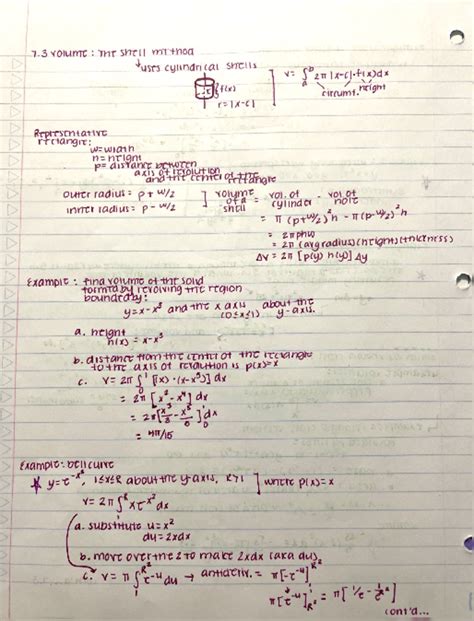 7.3 volume: the shell method
↳uses cylindrical shells
f(x)
r = |x-c|
V = ∫ₐᵇ 2π |x-c|·f(x)dx
circumf. height
Representative
rectangle:
w = width
h = height
p = distance between
axis of revolution
and the center of the rectangle
outer radius = p + w/2
inner radius = p - w/2
volume of a shell = vol. of cylinder - vol of hole
= π (p+w/2)²h - π(p-w/2)²h
= 2πphw
= 2π (avg radius)(height)(thickness)
ΔV = 2π [p(y) h(y)] Δy
Example: find volume of the solid
formed by revolving the region
bounded by:
y=x-x³ and the x axis (0≤x≤1) about the y-axis.
a. height
h(x) = x-x³
b. distance from the center of the rectangle
to the axis of revolution is p(x)=x
c. V = 2π ∫₀¹ [(x)·(x-x³)] dx
= 2π [x²-x⁴] dx
= 2π [x³/3 - x⁵/5]₀¹ dx
= 4π/15
Example: bell curve
y = e^-x², 1≤x≤R about the y-axis, R>1 ] where p(x)=x
V = 2π ∫₁ᴿ xe^-x² dx
a. substitute u=x²
du = 2xdx
b. move over the 2 to make 2xdx (aka du).
c. V = π ∫₁^R² e^-u du → antideriv. = π[-e^-u]₁^R²
π[e^-u]¹_R² = π[1/e - 1/e^R²]
cont'd...